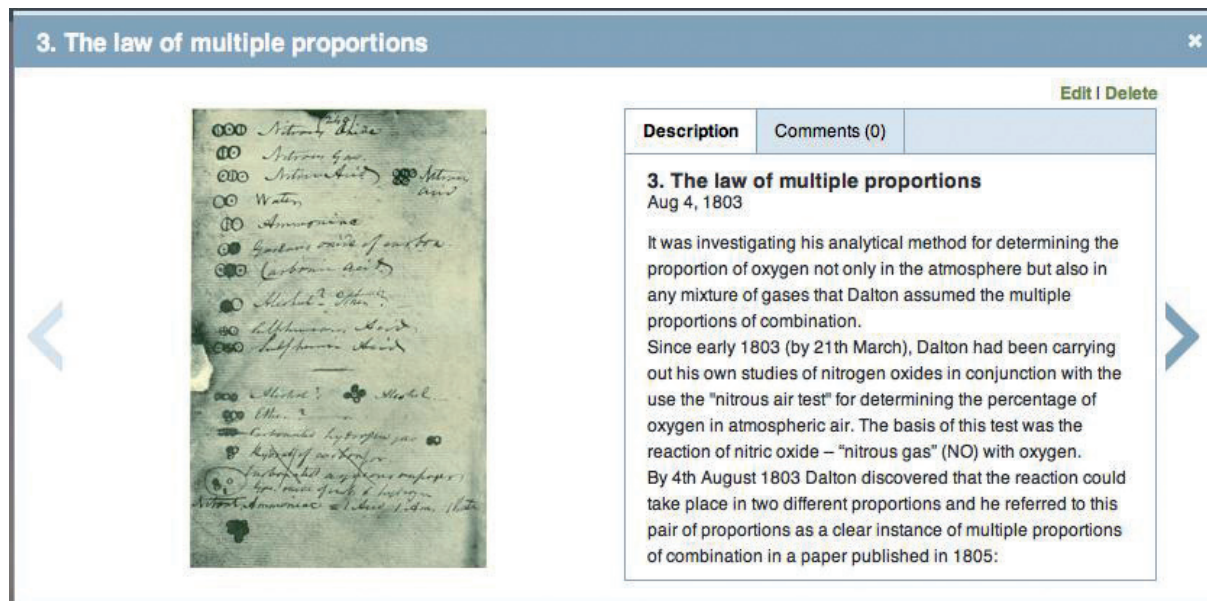 3. The law of multiple proportions
×
Edit | Delete
Nitrous Oxide
Nitrous Gas.
Nitrous Acid Nitrous
acid
Water
Ammoniac
Gaseous oxide of carbon.
Carbonic acid
Alcohol? Ether?
Sulphureous Acid
Sulphuric Acid
Alcohol? Alcohol
Ether?
Carbonated hydrogen gas
Hydrat of carbon
Description
Comments (0)
3. The law of multiple proportions
Aug 4, 1803
It was investigating his analytical method for determining the
proportion of oxygen not only in the atmosphere but also in
any mixture of gases that Dalton assumed the multiple
proportions of combination.
Since early 1803 (by 21th March), Dalton had been carrying
out his own studies of nitrogen oxides in conjunction with the
use the "nitrous air test" for determining the percentage of
oxygen in atmospheric air. The basis of this test was the
reaction of nitric oxide – “nitrous gas” (NO) with oxygen.
By 4th August 1803 Dalton discovered that the reaction could
take place in two different proportions and he referred to this
pair of proportions as a clear instance of multiple proportions
of combination in a paper published in 1805: